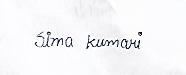 Sima kumari